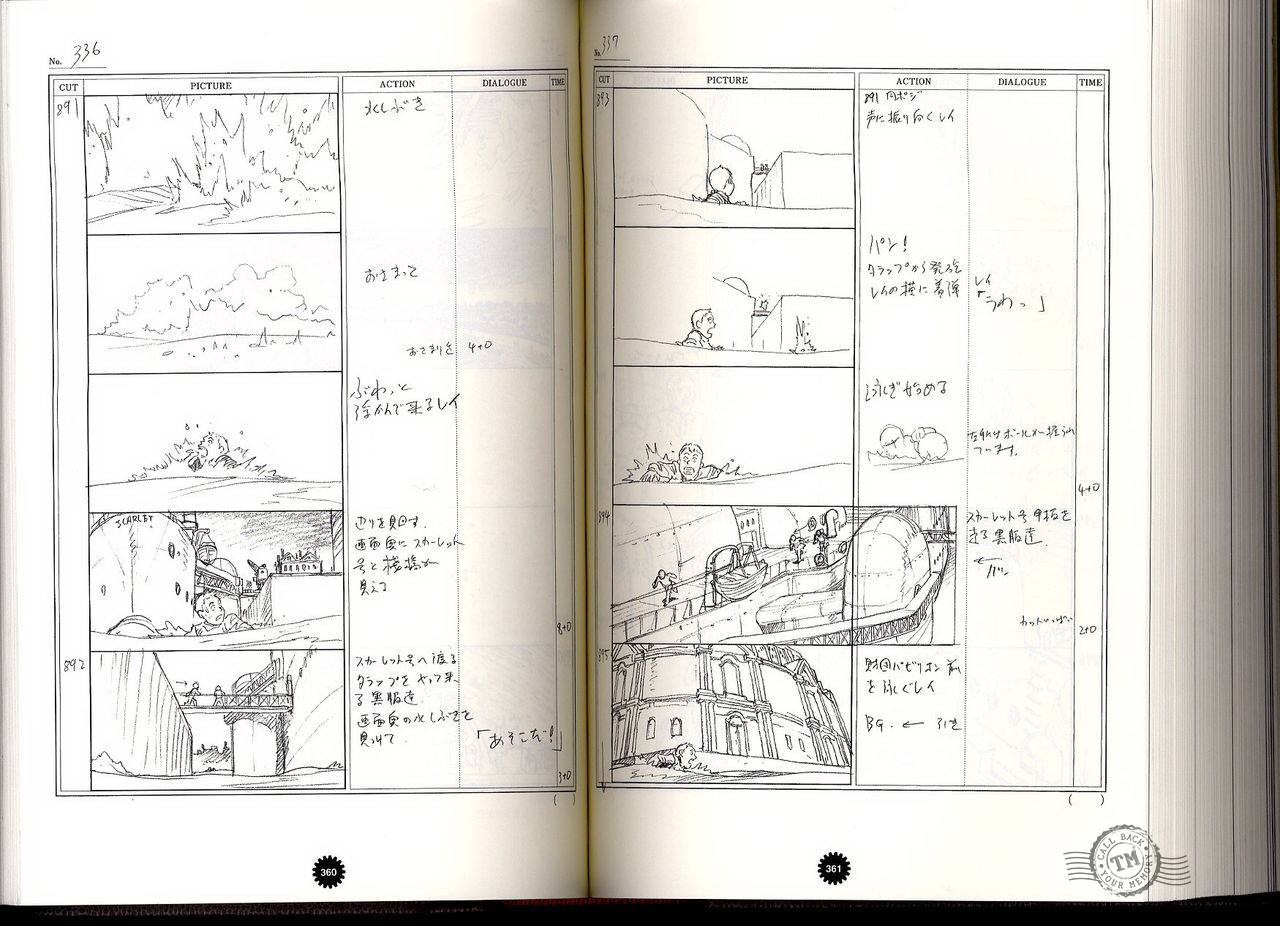 No. 336
CUT PICTURE ACTION DIALOGUE TIME
891
水しぶき
おさまって
おさまり迄 4+0
ぶわっと
浮かんで来るレイ
SCARLET
辺りを見回す.
画面奥に スカーレット
号と桟橋が
見える
8+0
892
スカーレット号へ渡る
タラップを やって来
る 黒服達.
画面奥の水しぶきを
見つけて.
「あそこだ!」
3+0
( )
360
No. 337
CUT PICTURE ACTION DIALOGUE TIME
893
891 同ポジ
声に振り向くレイ
パン!
タラップから発砲
レイの横に着弾
レイ
「うわっ」
泳ぎ始める
左手にはボールが握られ
ています.
4+0
894
スカーレット号 甲板を
走る 黒服達.
カットいっぱい
2+0
895
財団パビリオン 前
を 泳ぐレイ
BG. ← 引き
( )
361
CALL BACK
TM
YOUR MEMORY